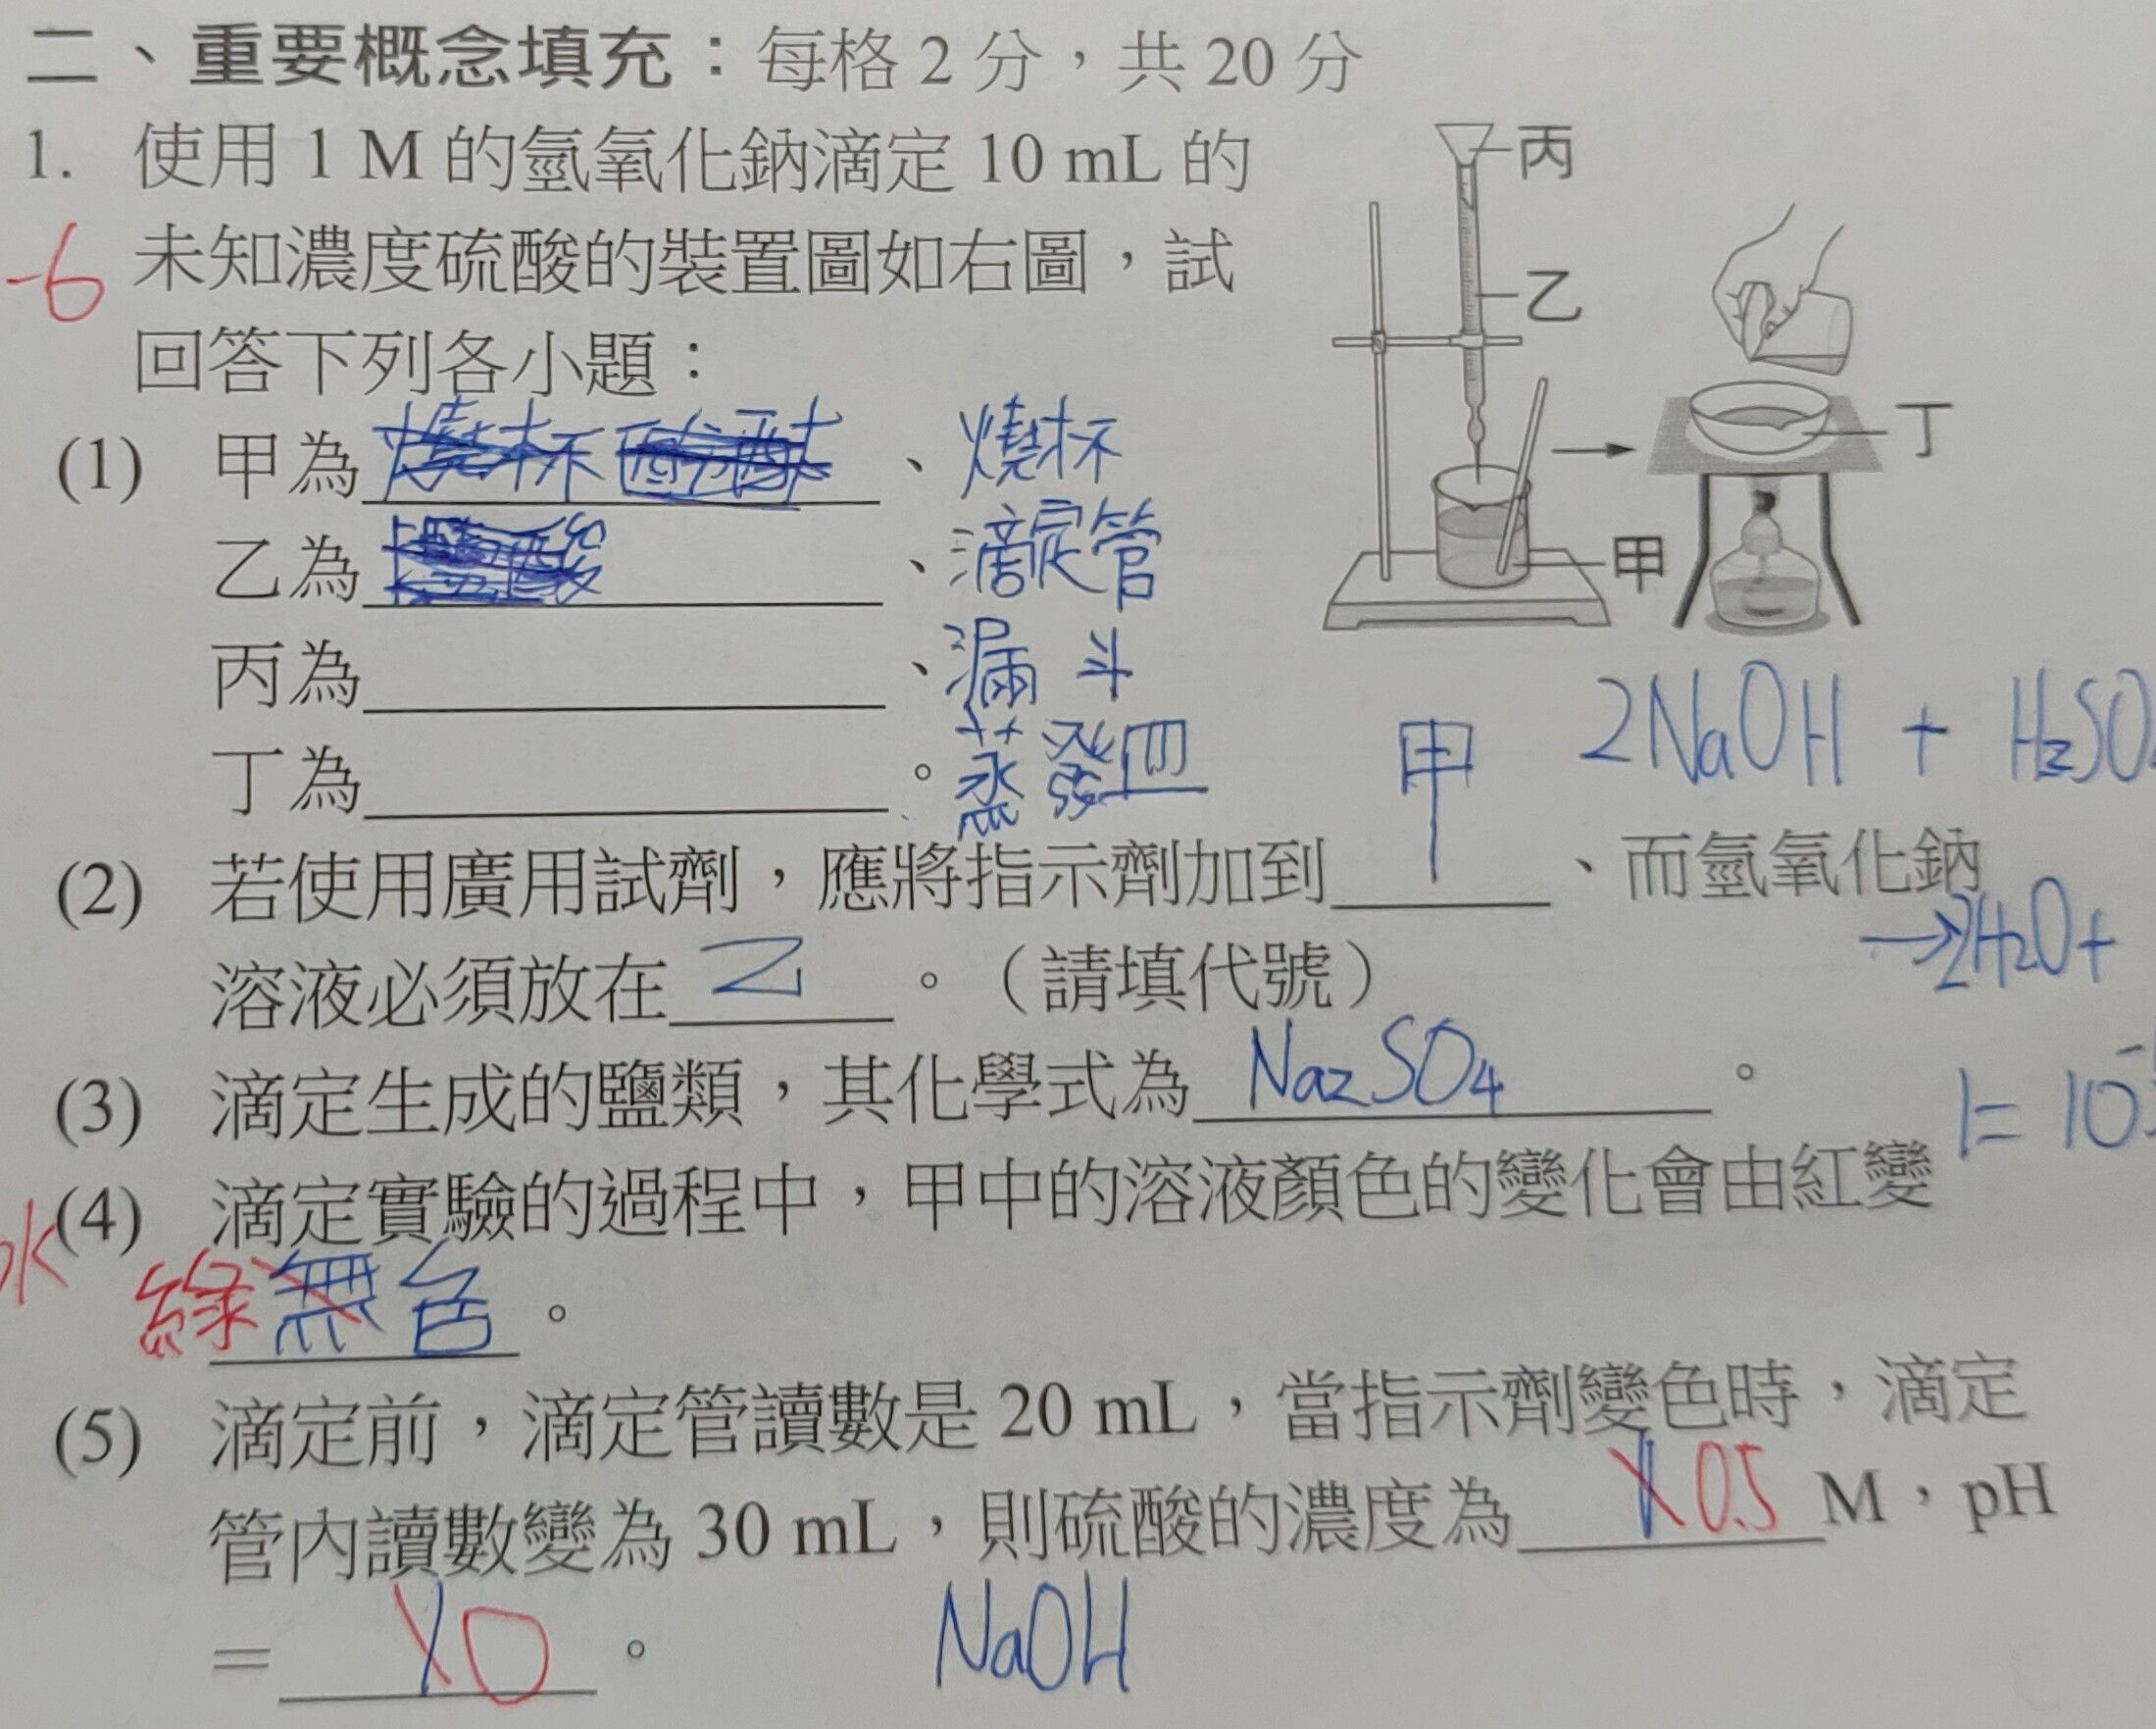 二、重要概念填充：每格 2 分，共 20 分
1. 使用 1 M 的氫氧化鈉滴定 10 mL 的
丙
-6 未知濃度硫酸的裝置圖如右圖，試
乙
回答下列各小題：
丁
(1) 甲為 燒杯 、燒杯
甲
乙為 、滴定管
丙為 、漏斗
丁為 。蒸發皿
2NaOH + H2SO
(2) 若使用廣用試劑，應將指示劑加到 甲 、而氫氧化鈉
→2H2O+
溶液必須放在 乙 。（請填代號）
(3) 滴定生成的鹽類，其化學式為 Na2SO4 。
1=10
(4) 滴定實驗的過程中，甲中的溶液顏色的變化會由紅變
綠 無色 。
(5) 滴定前，滴定管讀數是 20 mL，當指示劑變色時，滴定
管內讀數變為 30 mL，則硫酸的濃度為 1 0.5 M，pH
= 1 0 。
NaOH